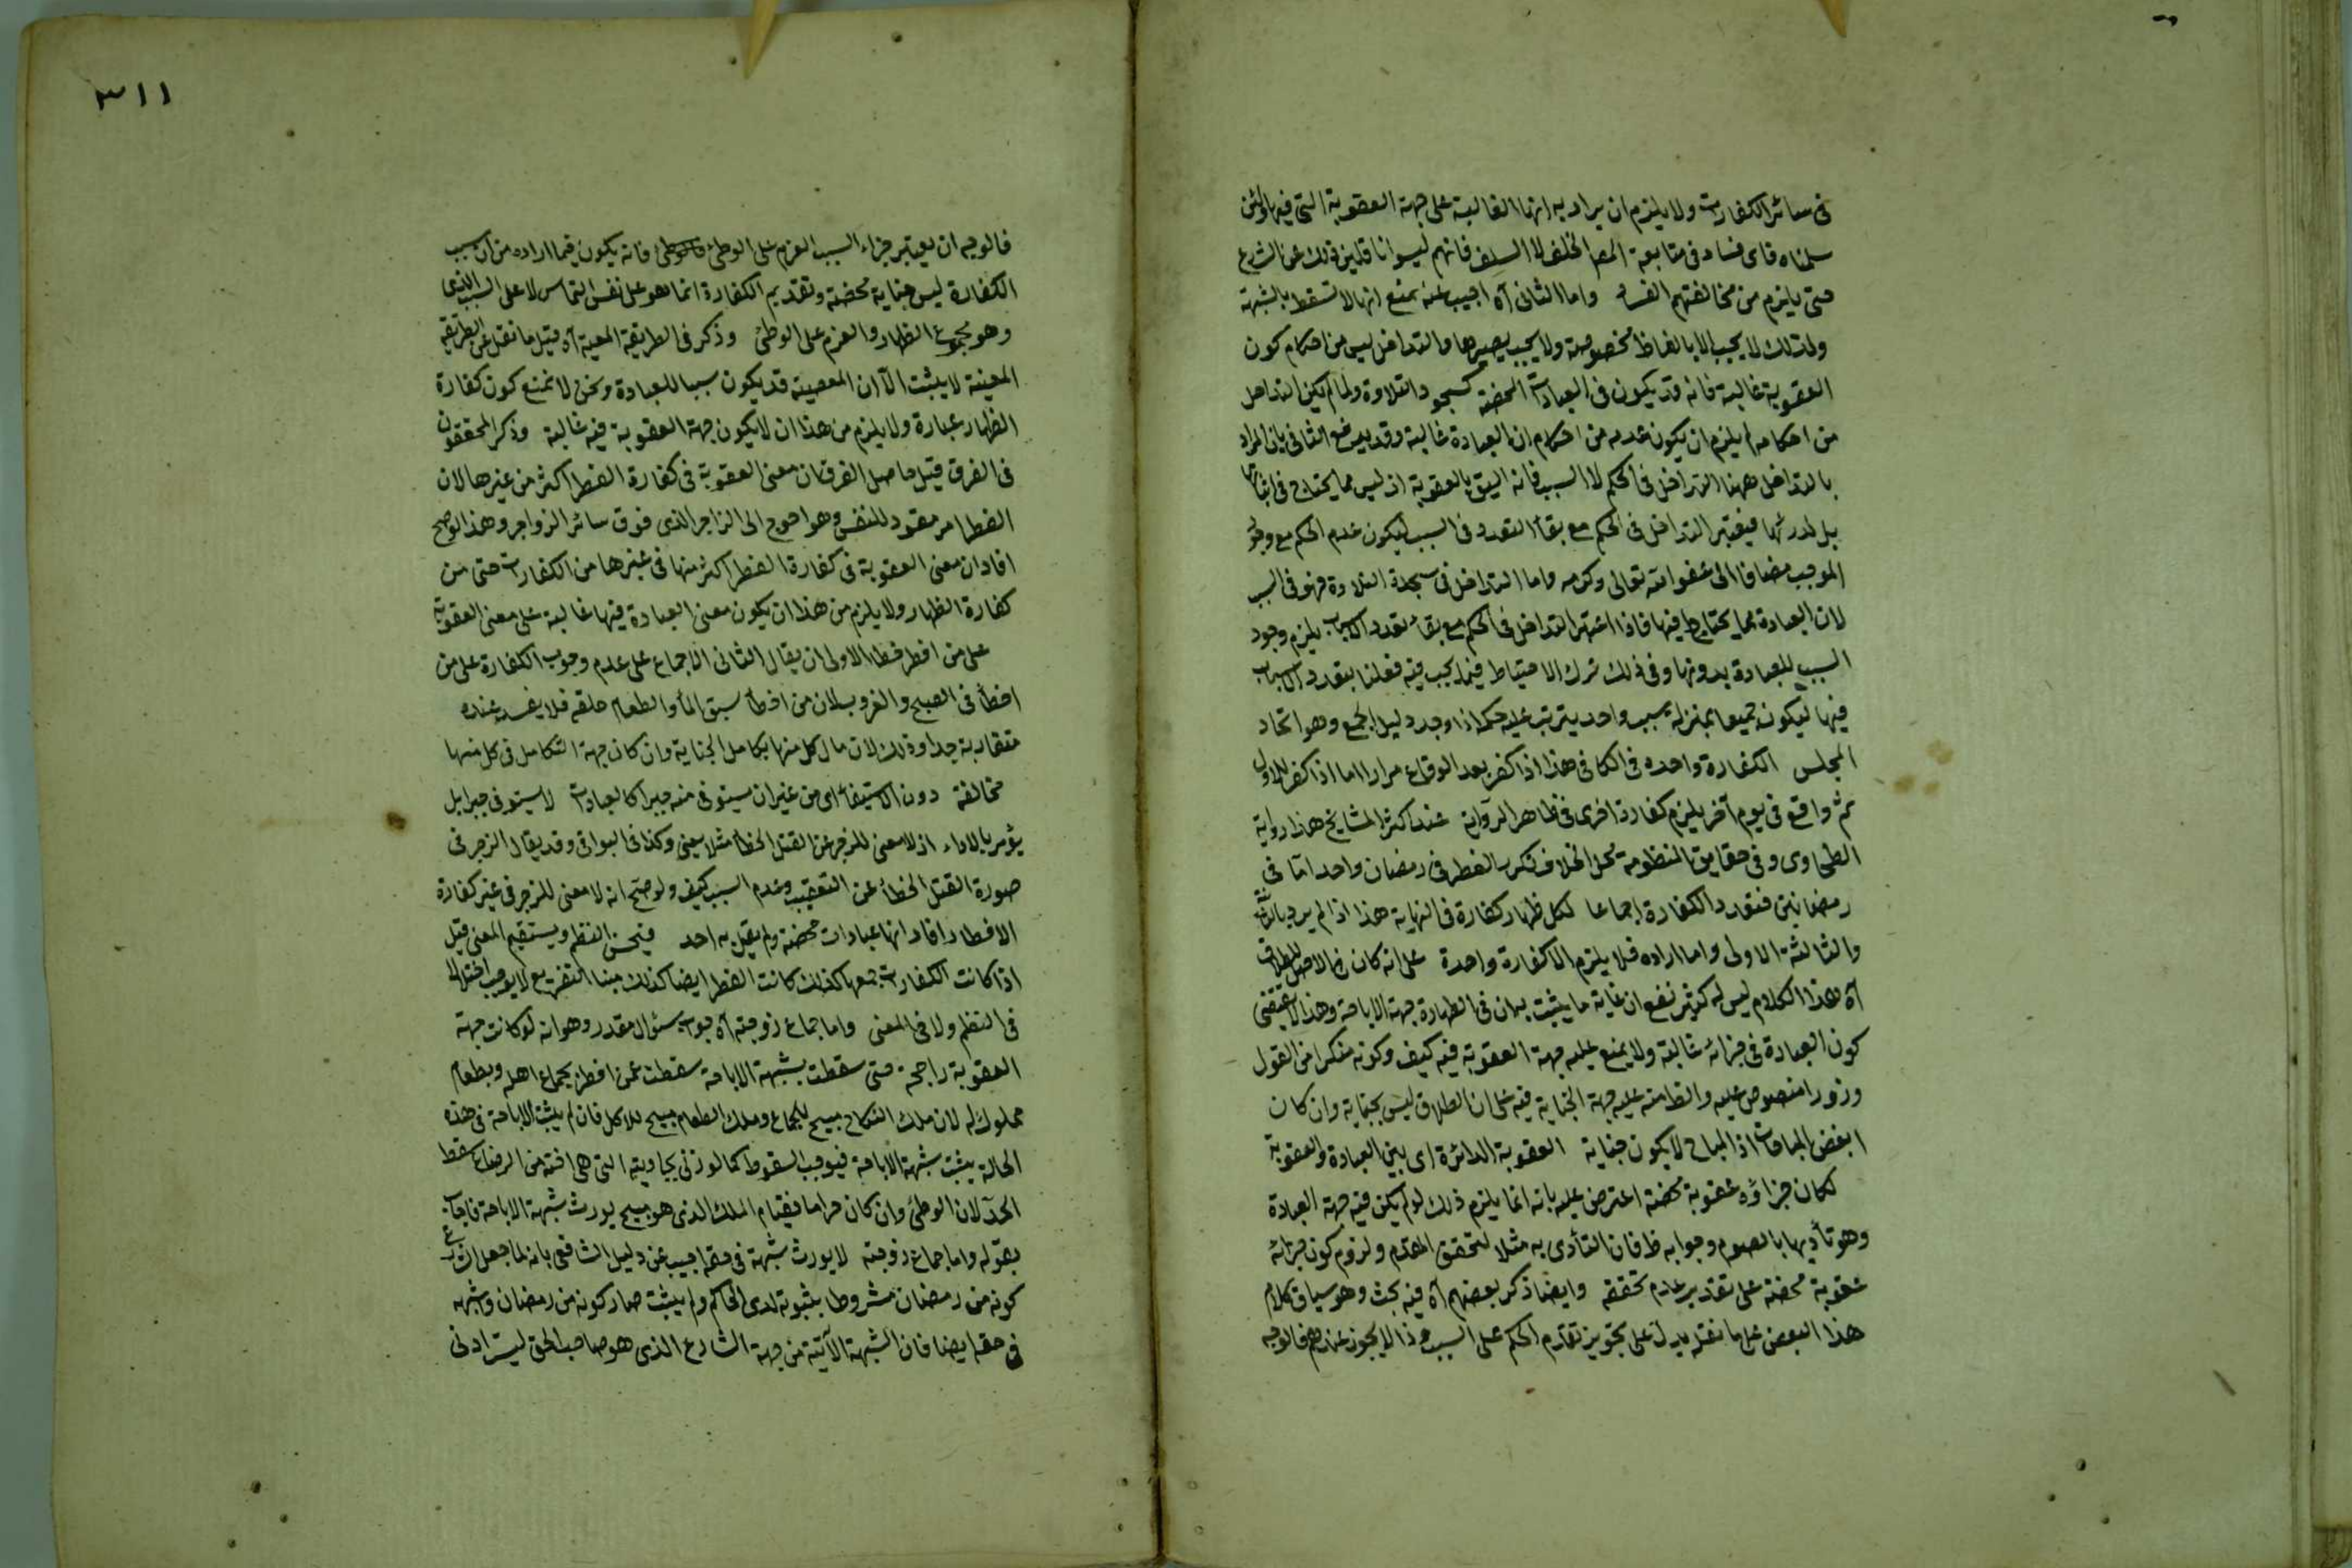 فى سائر الكفارات ولا يلزم ان يراد به انها الغالبة على جهة العقوبة التى فيها ولئن
سلمناه فاى فساد فى متابعة المص الخلف لا السلف فانهم ليسوا ناقلين ذلك عن الشرع
حتى يلزم من مخالفتهم الفساد واما الثانى آه اجيب عنه بمنع انها لا تسقط بالشبهة
ولذلك لا يجب الا بالفاظ مخصوصة ولا يجب بغيرها والتداخل ليس من احكام كون
العقوبة غالبة فانه قد يكون فى العبادات المحضة كسجود التلاوة ولما لم يكن التداخل
من احكامه لم يلزم ان يكون عدمه من احكام ان العبادة غالبة وقد يدفع الثانى بان المراد
بالتداخل ههنا التداخل فى الحكم لا السبب فانه اليق بالعقوبة اذ ليس مما يحتاج فى اثباتها
بل لدرئها فيعتبر التداخل فى الحكم مع بقاء التعدد فى السبب ليكون عدم الحكم مع وجود
الموجب مضافا الى عفو الله تعالى وكرمه واما التداخل فى سجدة التلاوة فهو فى السبب
لان العبادة مما يحتاط فيها فاذا اعتبر التداخل فى الحكم مع بقاء تعدد الاسباب يلزم وجود
السبب للعبادة بدونها وفى ذلك ترك الاحتياط فيما يجب فيه فعلنا بتعدد الاسباب
فيها ليكون جميعا بمنزلة سبب واحد يترتب عليه حكمه اذا وجد دليل الجمع وهو اتحاد
المجلس الكفارة واحده فى الكافى هذا اذا كفر بعد الوقاع مرارا اما اذا كفر للاول
ثم واقع فى يوم آخر يلزم كفارة اخرى فى ظاهر الرواية عند اكثر المشايخ هذا رواية
الطحاوى وفى حقايق المنظومة محل الخلاف تكرر الفطر فى رمضان واحد اما فى
رمضانين فتعدد الكفارة اجماعا لكل ظهار كفارة فى النهاية هذا اذا لم يرد بالثانية
والثالثة الاولى واما اراده فلا يلزم الا كفارة واحدة على انه كان فى الاصل للطلاق
آه هذا الكلام ليس له كثير نفع ان غاية ما يثبت به ان فى الظهار جهة الاباحة وهذا لا يقتضى
كون العبادة فى جزائه غالبة ولا يمنع عليه جهة العقوبة فيه كيف وكونه منكرا من القول
وزورا منصوص عليه والظ منه عليه جهة الجناية فيه على ان الطلاق ليس بجناية وان كان
ابغض المباحات اذ المباح لا يكون جناية العقوبة الدائرة اى بين العبادة والعقوبة
لكان جزاؤه عقوبة محضة اعترض عليه بانه انما يلزم ذلك لو لم يكن فيه جهة العبادة
وهو تأديها بالصوم وجوابه ظ فان التأدى به مثلا لتحقق العدم ولزوم كون جزائه
عقوبة محضة على تقدير عدم تحققه وايضا ذكر بعضهم آه فيه بحث وهو سياق كلام
هذا البعض على ما نقله يدل على تجويز تقدم الحكم على السبب وذا لا يجوز عندهم فالوجه
٣١١
فالوجه ان يعتبر جزاء السبب العزم على الوطئ فانه يكون فيما اراده من ان سبب
الكفارة ليس جناية محضة وتقديم الكفارة انما هو على نفس التماس لا على السبب الذى
وهو مجموع الظهار والعزم على الوطئ وذكر فى الطريقة المعينة آه قيل ما نقل عن الطريقة
المعينة لا يثبت الا ان المعصية قد يكون سببا للعبادة ونحن لا نمنع كون كفارة
الظهار عبارة ولا يلزم من هذا ان لا يكون جهة العقوبة فيه غالبة وذكر المحققون
فى الفرق قيل حاصل الفرق ان معنى العقوبة فى كفارة الفطر اكثر من غيرها لان
الفطر امر مقود للنفس وهو احوج الى الزاجر الذى فوق سائر الزواجر وهذا لو صح
افاد ان معنى العقوبة فى كفارة الفطر اكثر منها فى غيرها من الكفارات حتى من
كفارة الظهار ولا يلزم من هذا ان يكون معنى العبادة فيها غالبة على معنى العقوبة
على من افطر خطا الاولى ان يقال الثانى الاجماع على عدم وجوب الكفارة على من
اخطأ فى الصبح والغروب لان من اخطأ سبق الماء والطعام حلقه فلا يفسد عنده
متقاربة جدا وذلك لان مال كل منها بكامل الجناية وان كان جهة التكامل فى كل منها
مخالفة دون الاستيفاء اى من غير ان يستوفى منه جبرا كالعبادات لا يستوفى جبرا بل
يؤمر بالاداء اذ لا معنى للزجر عن القتل الخطأ مثلا يعنى وكذا فى البواقى وقد يقال الزجر فى
صورة القتل الخطأ عن التعقيب وعدم السبب كيف ولو صح انه لا معنى للزجر فى غير كفارة
الافطار افاد انها عبادات محضة ولم يقل به احد فيحسن النظم ويستقيم المعنى قيل
اذا كانت الكفارات جمعها كذلك كانت الفطر ايضا كذلك مبنا التفريع لا يوجب اختلالا
فى النظم ولا فى المعنى واما جماع زوجته آه جواب سئوال مقدر وهو انه لو كانت جهة
العقوبة راجحة حتى سقطت بشبهة الاباحة سقطت عمن افطر بجماع اهله وبطعام
مملوك له لان ملك النكاح مبيح للجماع وملك الطعام مبيح للاكل فان لم يثبت الاباحة فى هذه
الحالة يثبت شبهة الاباحة فيوجب السقوط كما لو زنى بجاريته التى هى اخته من الرضاع سقط
الحد لان الوطئ وان كان حراما فقيام الملك الذى هو مبيح يورث شبهة الاباحة فاجاب
بقوله واما جماع زوجته لا يورث شبهة فى حقه اجيب عن دليل الشافعى بانه لما جعل الشرع
كونه من رمضان مشروطا بثبوته لدى الحاكم ولم يثبت صار كونه من رمضان واشبهه
فى حقه ايضا فان الشبهة الآتية من جهة الشارع الذى هو صاحب الحق ليست ادنى